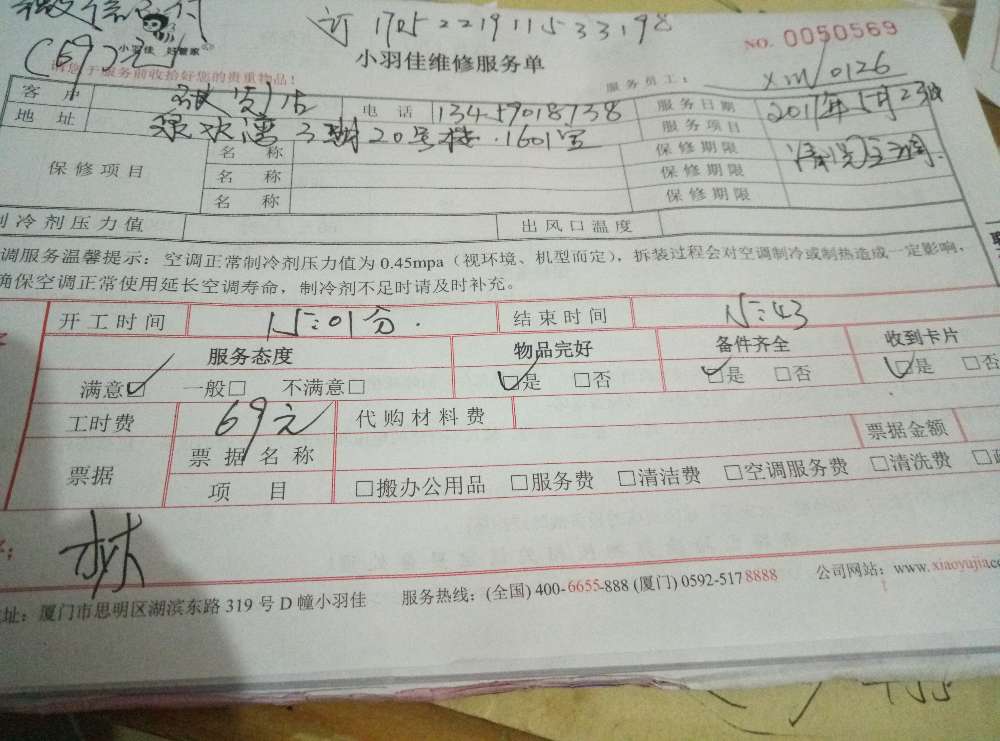 订 1705221911533198
(69)元
小羽佳 好管家
NO. 0050569
小羽佳维修服务单
服务员工: XM/0126
请您于服务前收拾好您的贵重物品!
客 户 电 话 13459018738 服务日期
地 址 3期20号楼.1601室 服务项目
保修项目 名 称 保修期限
名 称 保修期限
名 称 保修期限
制冷剂压力值 出风口温度
调服务温馨提示: 空调正常制冷剂压力值为0.45mpa(视环境、机型而定),拆装过程会对空调制冷或制热造成一定影响,
确保空调正常使用延长空调寿命,制冷剂不足时请及时补充。
开工时间 15:01分. 结束时间 15:43
服务态度 物品完好 备件齐全 收到卡片
满意☑ 一般□ 不满意□ ☑是 □否 ☑是 □否 ☑是 □否
工时费 69元 代购材料费
票据 票据名称 票据金额
项 目 □搬办公用品 □服务费 □清洁费 □空调服务费 □清洗费
林
址: 厦门市思明区湖滨东路319号D幢小羽佳 服务热线: (全国) 400-6655-888 (厦门) 0592-5178888 公司网站: www.xiaoyujia.c